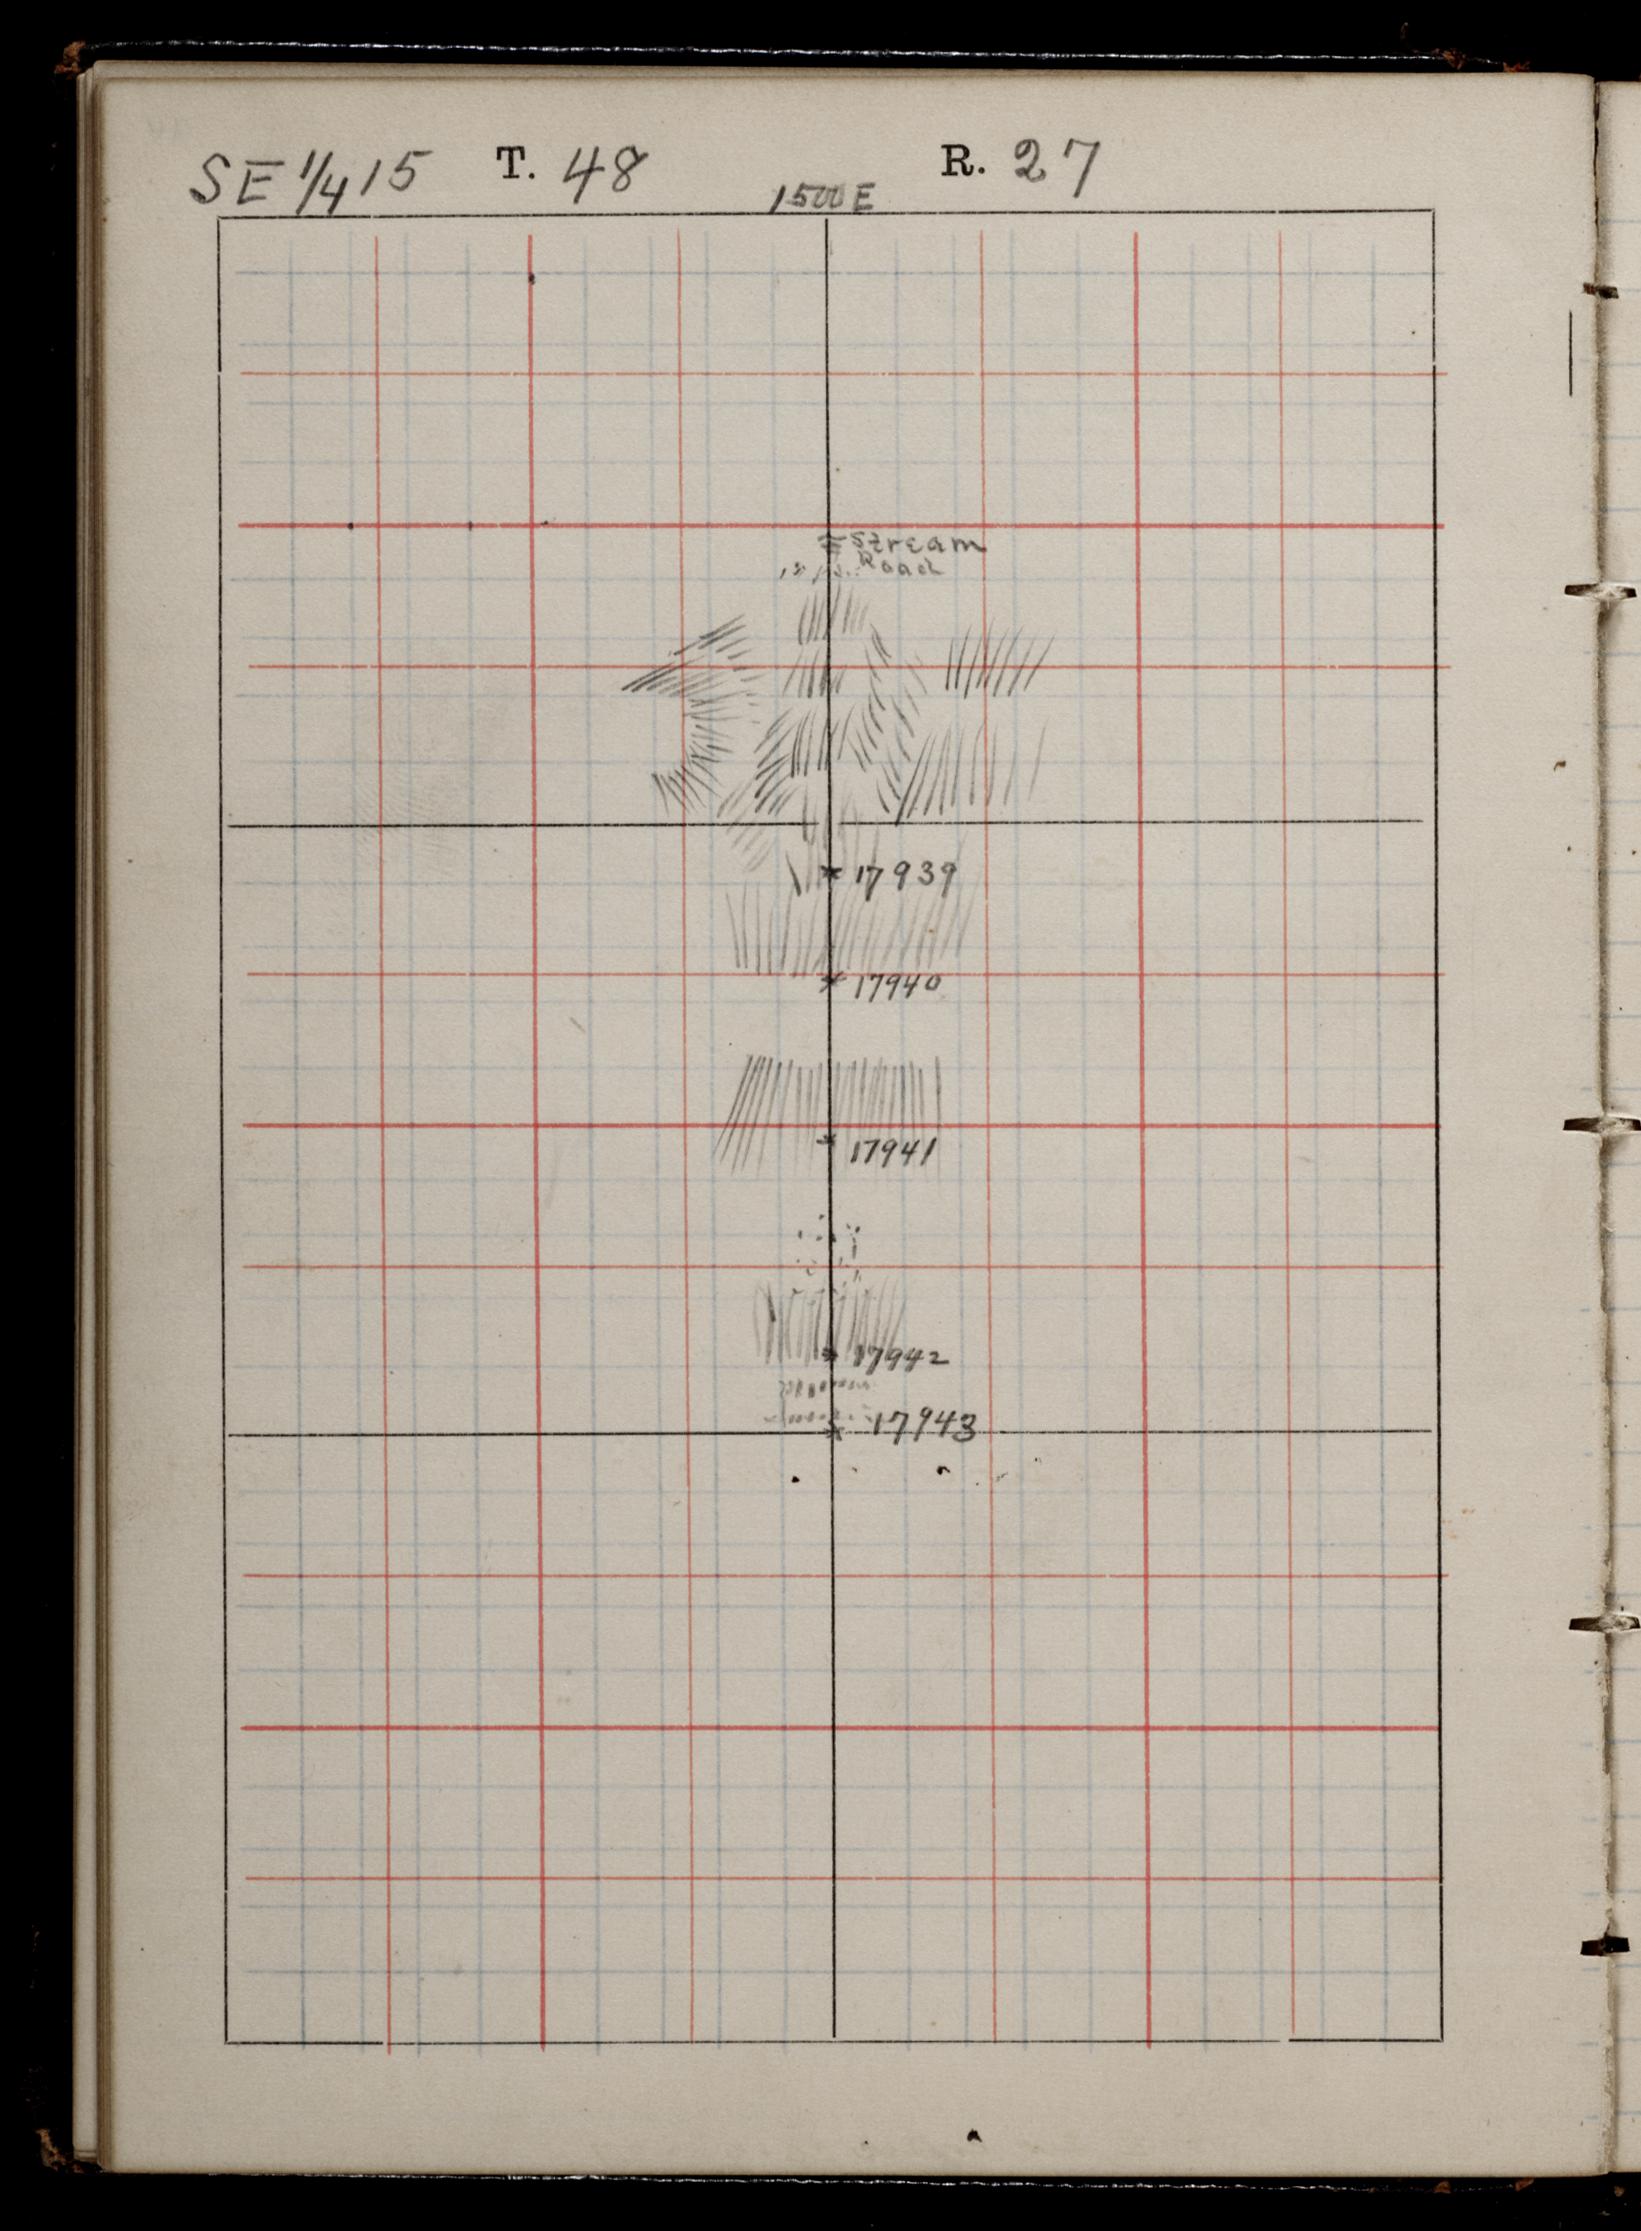 SE 1/4 15 T. 48 R. 27
1500 E
Stream
Road
17939
17940
17941
17942
17943